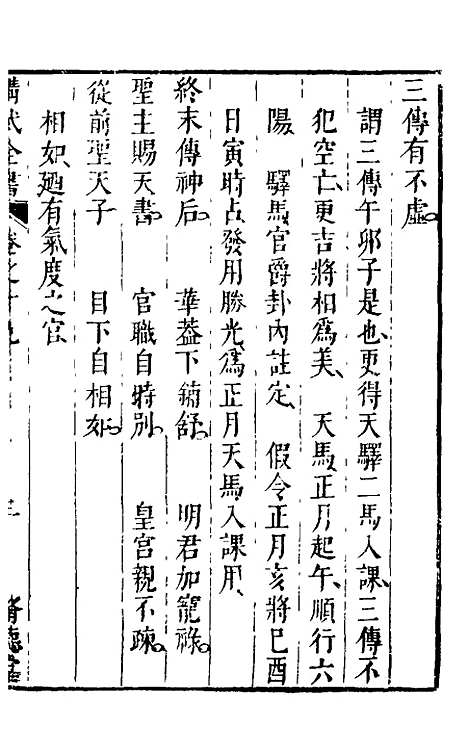 三傳有不虛
謂三傳午卯子是也更得天驛二馬入課三傳不
犯空亡更吉將相爲美 天馬正月起午順行六
陽 驛馬官爵卦內註定 假令正月亥將巳酉
日寅時占發用勝光爲正月天馬入課用
終末傳神后 華蓋下鋪舒 明君加寵祿
聖主賜天書 官職自特別 皇宮親不疎
從前聖天子 目下自相如
相如廼有氣度之官
講武全書 卷之